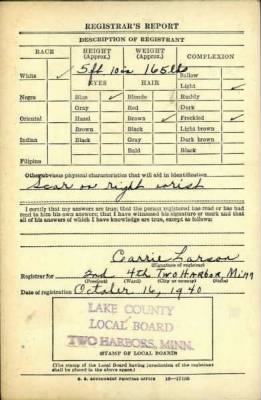 REGISTRAR'S REPORT
DESCRIPTION OF REGISTRANT
RACE HEIGHT (Approx.) WEIGHT (Approx.) COMPLEXION
White ✓ 5 ft 10 in 165 lbs Sallow
EYES HAIR Light ✓
Negro Blue ✓ Blonde Ruddy
Gray Red Dark
Oriental Hazel Brown ✓ Freckled ✓
Brown Black Light brown
Indian Black Gray Dark brown
Bald Black
Filipino
Other obvious physical characteristics that will aid in identification
Scar on right wrist
I certify that my answers are true; that the person registered has read or has had
read to him his own answers; that I have witnessed his signature or mark and that
all of his answers of which I have knowledge are true, except as follows:
Carrie Larson
(Signature of registrar)
Registrar for 2nd 4th Two Harbor, Minn
(Precinct) (Ward) (City or county) (State)
Date of registration October 16, 1940
LAKE COUNTY
LOCAL BOARD
TWO HARBORS, MINN.
(STAMP OF LOCAL BOARD)
(The stamp of the Local Board having jurisdiction of the registrant
shall be placed in the above space.)
U. S. GOVERNMENT PRINTING OFFICE 16—17105